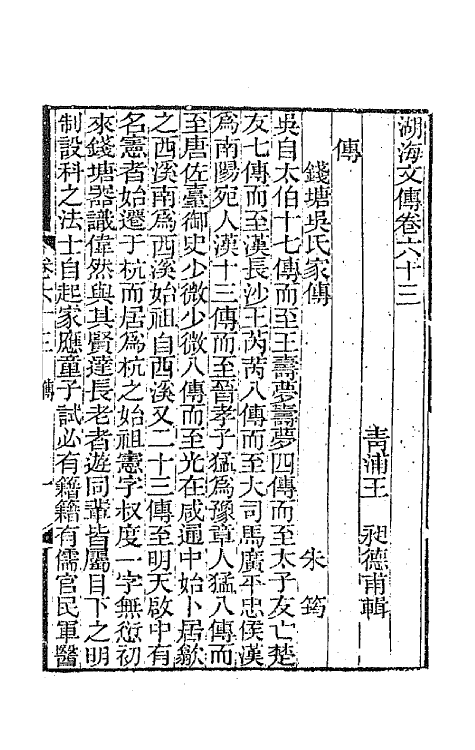 湖海文傳卷六十三
青浦王 昶德甫輯
傳
錢塘吳氏家傳 朱 筠
吳自太伯十七傳而至王壽夢壽夢四傳而至太子友亡楚
友七傳而至漢長沙王芮芮八傳而至大司馬廣平忠侯漢
爲南陽宛人漢十三傳而至晉孝子猛爲豫章人猛八傳而
至唐佐臺御史少微少微八傳而至光在咸通中始卜居歙
之西溪南爲西溪始祖自西溪又二十三傳至明天啟中有
名憲者始遷于杭而居爲杭之始祖憲字叔度一字無愆初
來錢塘器識偉然與其賢達長老者遊同輩皆屬目下之明
制設科之法士自起家應童子試必有籍籍有儒官民軍醫
卷六十三 傳 一